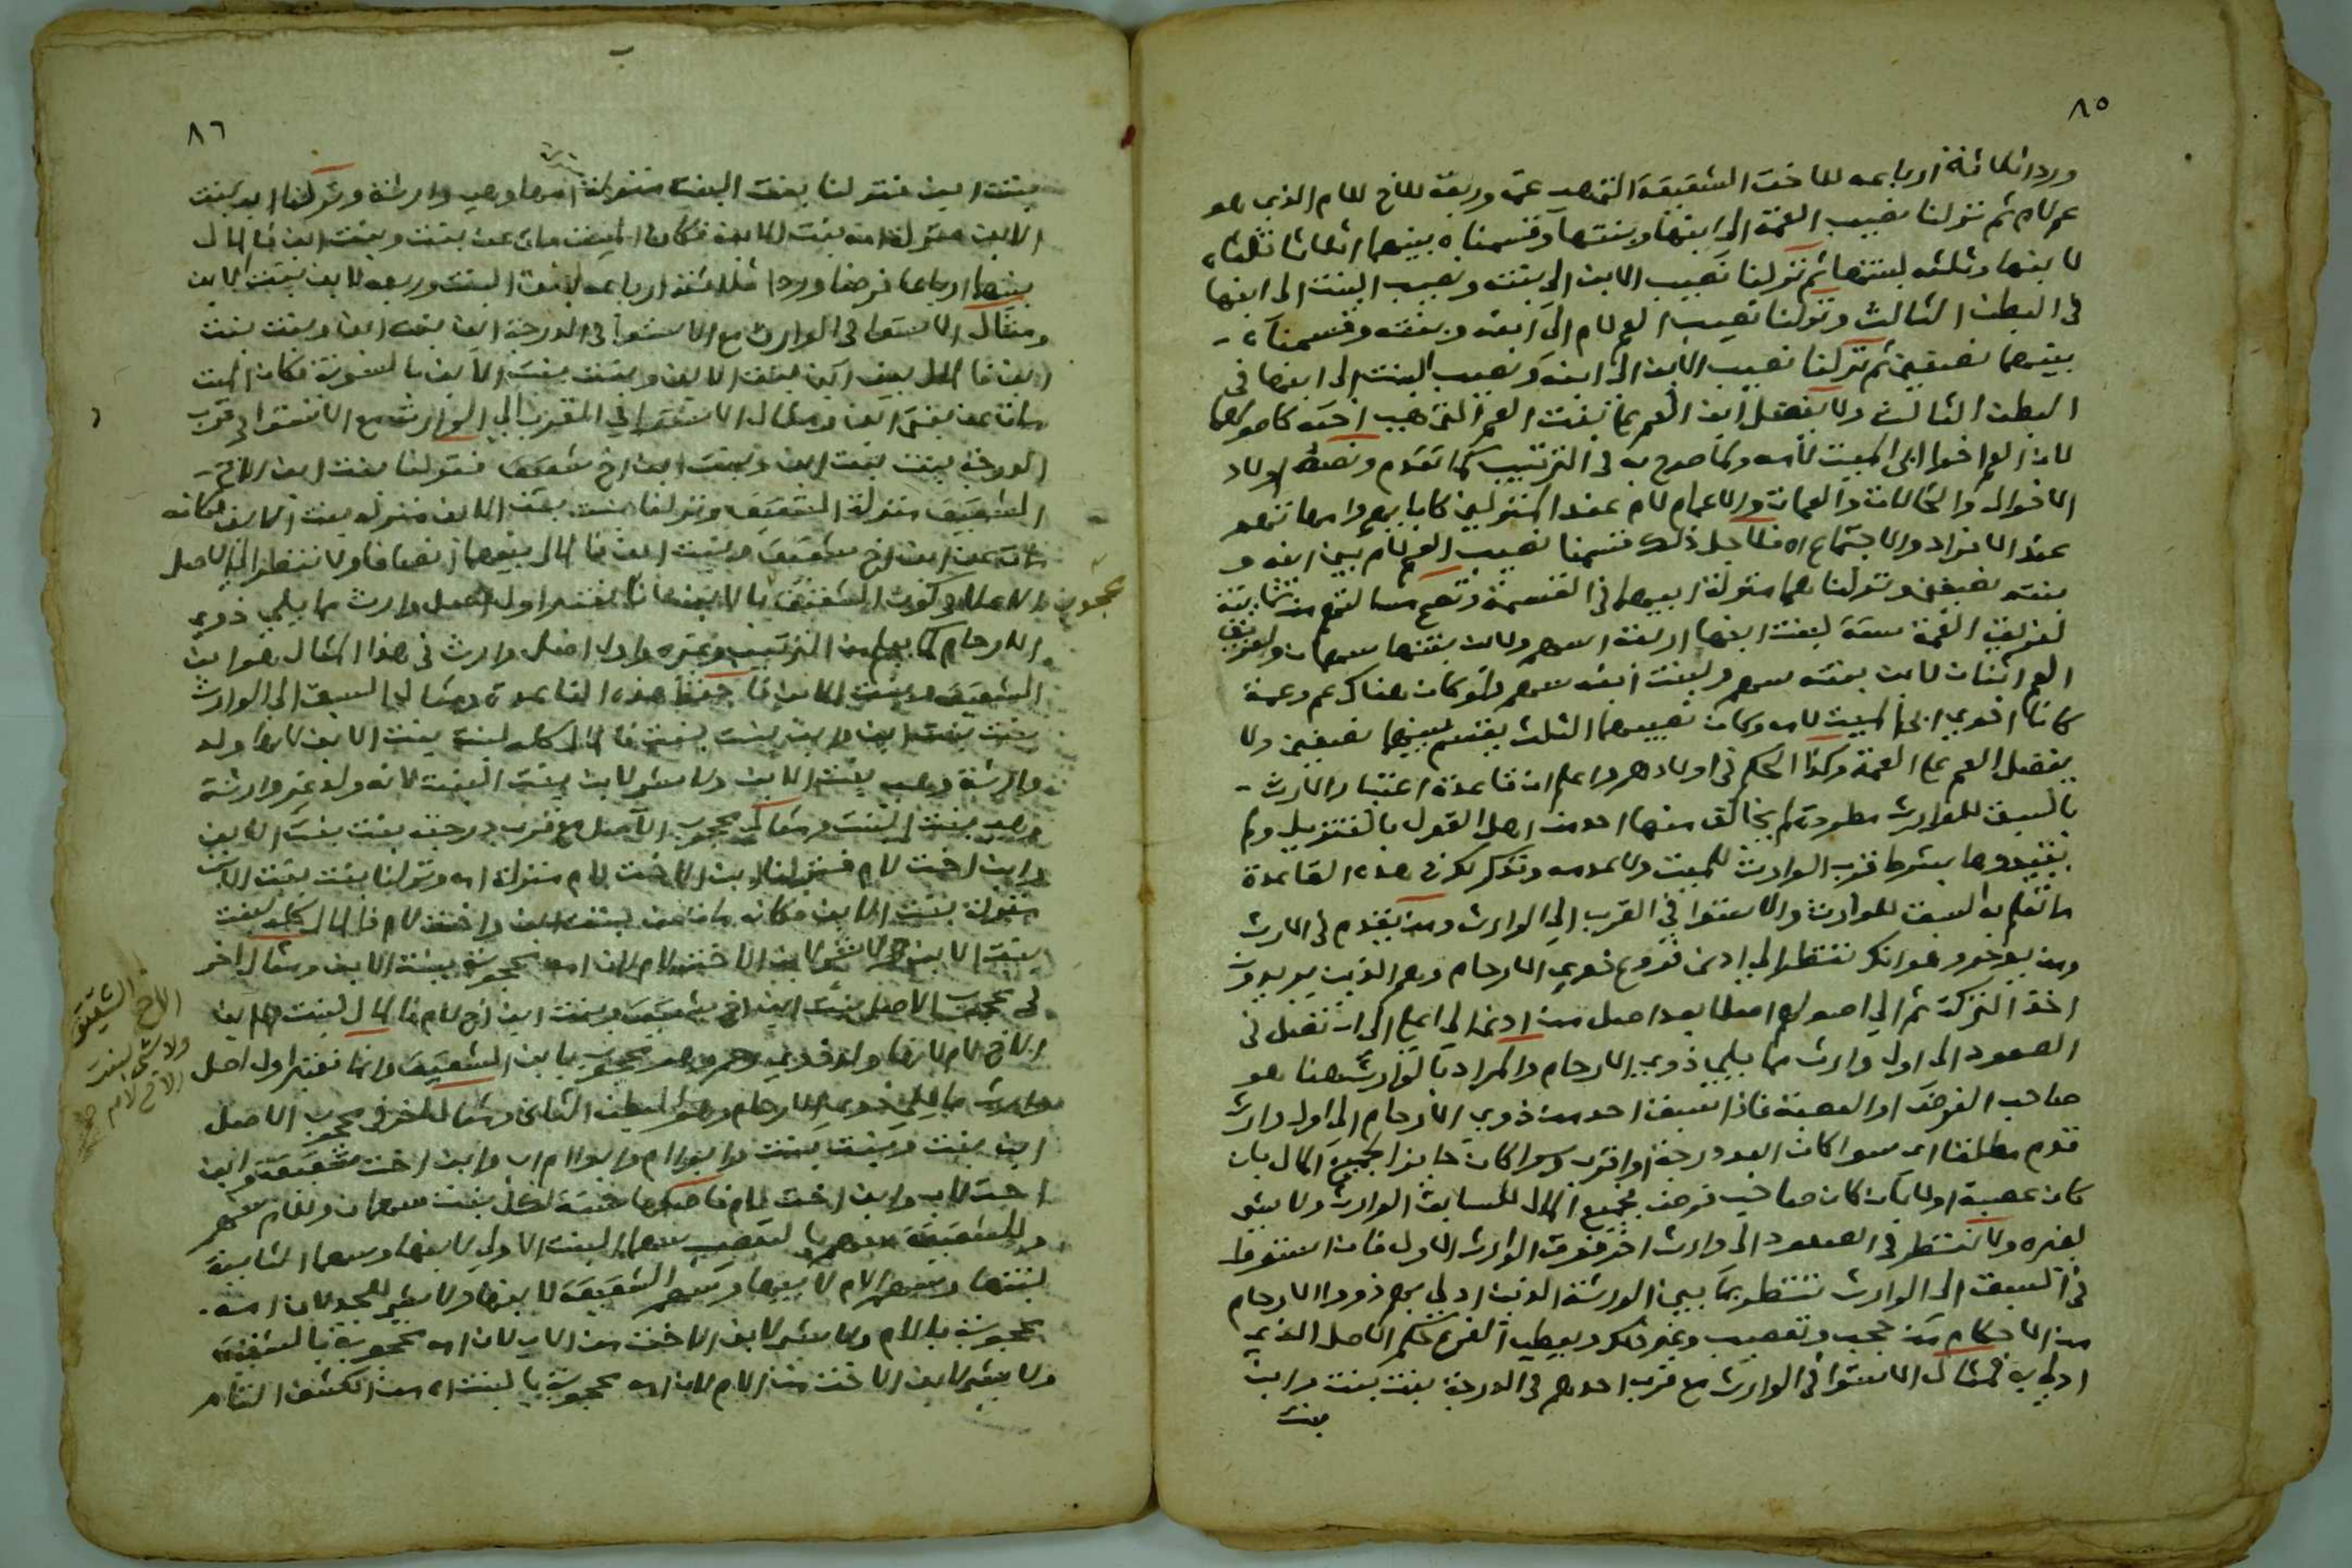 ٨٥
وردا ثلاثة ارباعه للاخت الشقيقة التي هي عمة وربعه للاخ للام الذي هو
عم لام ثم نزلنا نصيب العمة الى ابنها وبنتها وقسمناه بينهما اثلاثا ثلثاه
لابنها وثلثه لبنتها ثم نزلنا نصيب الابن الى بنته ونصيب البنت الى ابنها
في البطن الثالث ونزلنا نصيب العم لام الى ابنه وبنته وقسمناه
بينهما نصفين ثم نزلنا نصيب الابن الى ابنه ونصيب البنت الى ابنها في
البطن الثالث ولا يفضل ابن العم على بنت العم التي هي اخته كاصولهما
لان العم اخو ابي الميت لامه وكما صرح به في الترتيب كما تقدم ونصه اولاد
الاخوال والخالات والعمات والاعمام لام عند المنزلين كابايهم وامهاتهم
عند الانفراد والاجتماع اه فلاجل ذلك قسمنا نصيب العم لام بين ابنه و
بنته نصفين ونزلناهما منزلة ابيهما في القسمة وتصح مسالتهم من ثمانية
لفريق العمة ستة لبنت ابنها اربعة اسهم ولابن بنتها سهمان ولفريق
العم اثنان لابن بنته سهم ولبنت ابنه سهم ولو كان هناك عم وعمة
كانا اخوي ابي الميت لامه وكان نصيبهما الثلث يقسم بينهما نصفين ولا
يفضل العم على العمة وكذا الحكم في اولادهم واعلم ان قاعدة اعتبار الارث
بالسبق للوارث مطردة لم يخالف منها احد من اهل القول بالتنزيل ولم
يقيدوها بشرط قرب الوارث للميت ولا عدمه ونذكر لك في هذه القاعدة
ما تعلم به السبق للوارث والاستوا في القرب الى الوارث ومن يقدم في الارث
ومن يوخر وهو انك تنتظر الى ادنى فروع ذوي الارحام وهم الذين يريدون
اخذ التركة ثم الى اصولهم اصلا بعد اصل من ادنى الى اعلى الى ان تصل في
الصعود الى اول وارث مما يلي ذوي الارحام والمراد بالوارث هنا هو
صاحب الفرض او العصبة فاذا سبق احد من ذوي الارحام الى اول وارث
قدم مطلقا اي سوا كان ابعد درجة او اقرب وسوا كان حايزا لجميع المال بان
كان عصبة اولا بان كان صاحب فرض فجميع المال للسابق الوارث ولا شي
لغيره ولا تنتظر في الصعود الى وارث اخر فوق الوارث الاول فان استووا
في السبق الى الوارث تنتظر بما بين الورثة الذين ادلي بهم ذووا الارحام
من الاحكام من حجب وتعصيب وغير ذلك ويعطى الفرع حكم الاصل الذي
ادلى به فمثال الاستوا في الوارث مع قرب احدهم في الدرجة بنت بنت وابن
بنت
٨٦
بنت ابن فنزلنا بنت البنت منزلة امها وهي وارثة ونزلنا ابن بنت
الابن منزلة امه بنت الابن فكان الميت مات عن بنت وبنت ابن فالمال
بينهما ارباعا فرضا وردا ثلاثة ارباعه لبنت البنت وربعه لابن بنت الابن
ومثال الاستوا في الوارث مع الاستوا في الدرجة ابن بنت ابن وبنت بنت
ابن فالمال بين ابن بنت الابن وبنت بنت الابن بالسوية فكان الميت
مات عن بنتي ابن ومثال الاستوا في القرب الى الوارث مع الاستوا في قرب
الدرجة بنت بنت ابن وبنت ابن اخ شقيق فنزلنا بنت ابن الاخ
الشقيق منزلة الشقيق ونزلنا بنت بنت الابن منزلة بنت الابن فكانه
مات عن ابن اخ شقيق وبنت ابن فالمال بينهما انصافا ولا ننظر الى الاصل
الاعلى كون الشقيق بالابن فانا نعتبر اول اصل وارث مما يلي ذوي
محجوب
الارحام كما يعلم من الترتيب وغيره واول اصل وارث في هذا المثال هو ابن
الشقيق وبنت الابن فاحفظ هذه القاعدة ومثال السبق الى الوارث
بنت بنت ابن وابن بنت بنت فالمال كله لبنت بنت الابن لانها ولد
وارثة وهي بنت الابن ولا شي لابن بنت البنت لانه ولد غير وارثة
وهي بنت البنت ومثال محجوب الاصل مع قرب درجته بنت بنت الابن
وابن اخت لام فنزلنا ابن الاخت لام منزلة امه ونزلنا بنت بنت الابن
منزلة بنت الابن فكانه مات عن بنت ابن واخت لام فالمال كله لبنت
بنت الابن ولا شي لابن الاخت لام لان امه محجوبة ببنت الابن ومثال اخر
في محجوب الاصل بنت ابن اخ شقيق وبنت ابن اخ لام فالمال لبنت ابن
الاخ الشقيق
ولا شي لبنت
الاخ لام صح
الاخ لام لانها ولد ذوي رحم وهو محجوب بابن الشقيق وانما نعتبر اول اصل
وارث مما يلي ذوي الارحام وهو البطن الثاني ومثال اخر في محجوب الاصل
ابن بنت وبنت بنت وابو ام وابو ام اب وابن اخت شقيقة وابن
اخت لاب وابن اخت لام فاصلها ستة لكل بنت سهمان وللام سهم
وللشقيقة سهم بالتعصيب سهما البنت الاولى لابنها وسهما الثانية
لبنتها وسهم الام لابيها وسهم الشقيقة لابنها ولا شي للجد لان امه
محجوبة بالام ولا شي لابن الاخت من الاب لان امه محجوبة بالشقيقة
ولا شي لابن الاخت من الام لان امه محجوبة بالبنت اه من الكشف التام